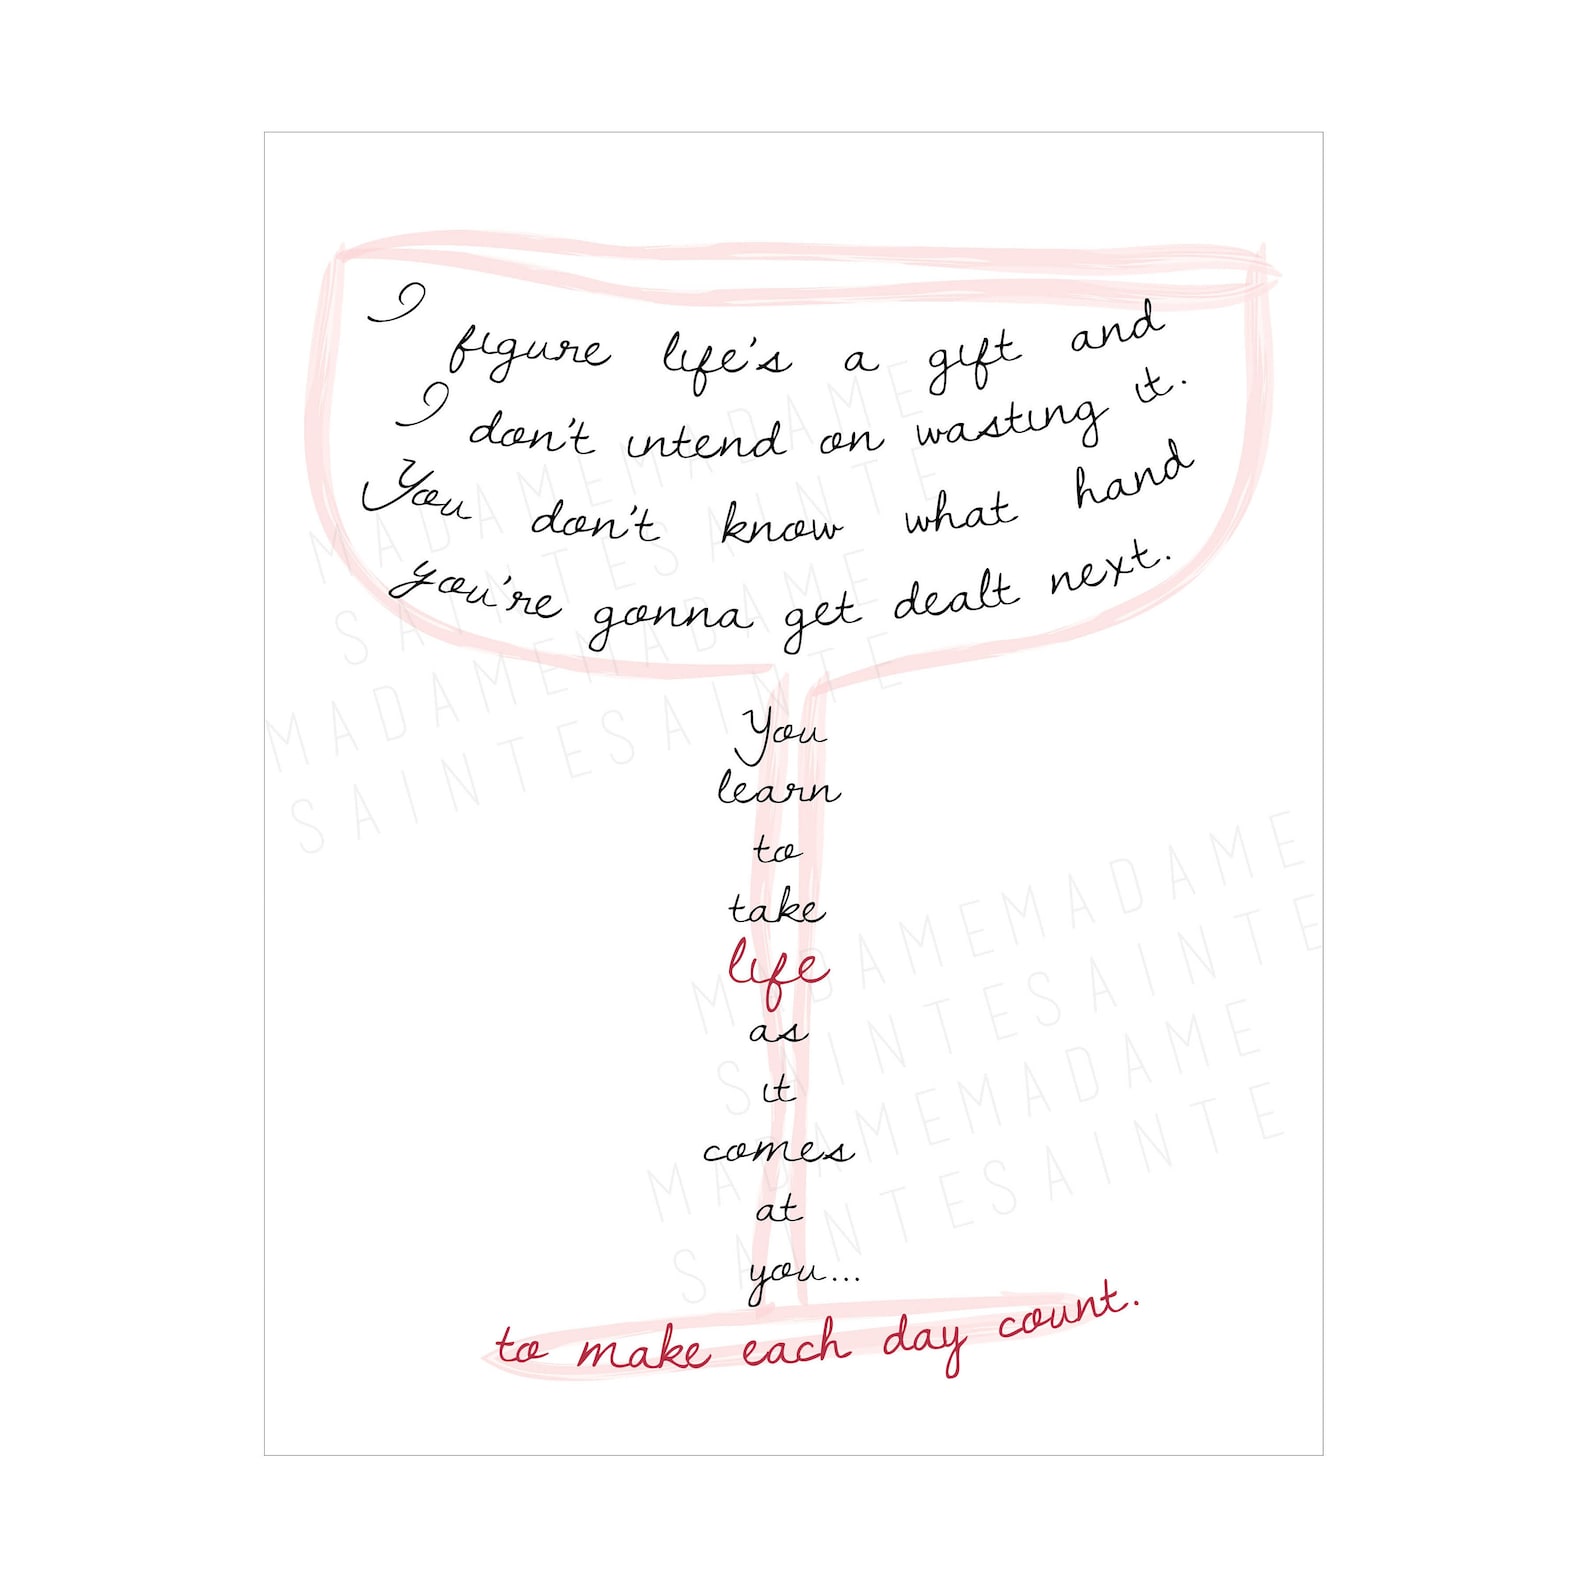 I figure life's a gift and
I don't intend on wasting it.
You don't know what hand
you're gonna get dealt next.
You
learn
to
take
life
as
it
comes
at
you...
to make each day count.
MADAMEMADAME
SAINTESAINTE
MADAMEMADAME
SAINTESAINTE
MADAMEMADAME
SAINTESAINTE
MADAMEMADAME
SAINTESAINTE